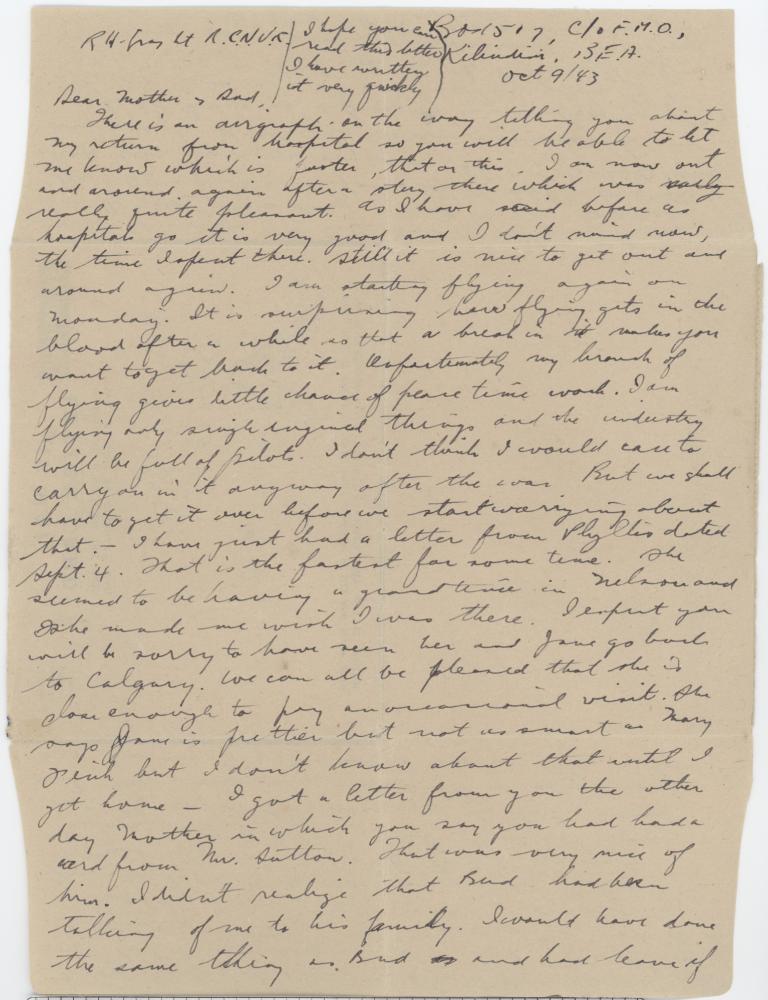 R H Gray Lt R.C.N.V.R.
I hope you can
read this letter
I have written
it very quickly
Box 1517, C/o F.M.O.,
Kilindini, B.E.A.
Oct 9/43
Dear Mother & Dad,
There is an airgraph on the way telling you about
my return from hospital so you will be able to let
me know which is faster, that or this. I am now out
and around again after a stay there which was really
really quite pleasant. As I have said before as
hospitals go it is very good and I don't mind now,
the time I spent there. Still it is nice to get out and
around again. I am starting flying again on
Monday. It is surprising how flying gets in the
blood after a while so that a break in it makes you
want to get back to it. Unfortunately my branch of
flying gives little chance of peace time work. I am
flying only single engined things and the industry
will be full of pilots. I don't think I would care to
carry on in it anyway after the war. But we shall
have to get it over before we start worrying about
that. — I have just had a letter from Phyllis dated
Sept. 4. That is the fastest for some time. She
seemed to be having a grand time in Nelson and
she made me wish I was there. I expect you
will be sorry to have seen her and Jane go back
to Calgary. We can all be pleased that she is
close enough to pay an occasional visit. She
says Jane is prettier but not as smart as Mary
but I don't know about that until I
get home — I got a letter from you the other
day Mother in which you say you had had a
card from Mr. Sutton. That was very nice of
him. I didn't realize that Bud had been
talking of me to his family. I would have done
the same thing as Bud and had leave if